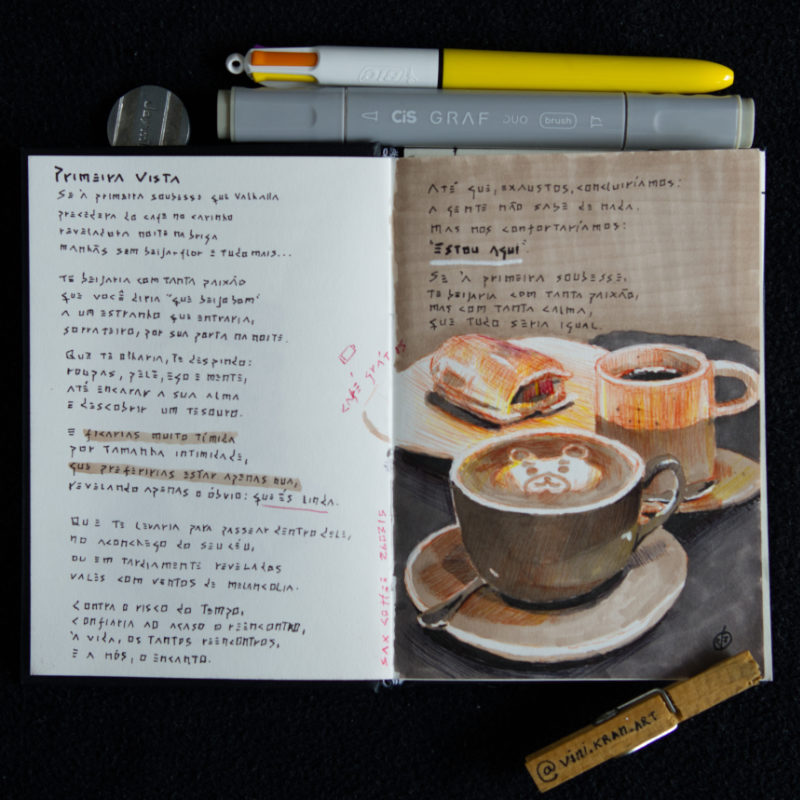 BIC
CiS GRAF DUO brush
PRIMEIRA VISTA
SE À PRIMEIRA SOUBESSE QUE VALHALLA
PRECEDERA DO CAFÉ NO CARINHO
REVELADORA NOITE NA BRIGA
MANHÃS SEM BEIJA-FLOR E TUDO MAIS...
TE BEIJARIA COM TANTA PAIXÃO
QUE VOCÊ DIRIA "QUE BEIJO BOM"
A UM ESTRANHO QUE ENTRARIA,
SORRATEIRO, POR SUA PORTA NA NOITE.
QUE TE OLHARIA, TE DESPINDO:
ROUPAS, PELE, EGO E MENTE,
ATÉ ENCARAR A SUA ALMA
E DESCOBRIR UM TESOURO.
E FICARIAS MUITO TÍMIDA
POR TAMANHA INTIMIDADE,
QUE PREFERIRIAS ESTAR APENAS NUA,
REVELANDO APENAS O ÓBVIO: QUE ÉS LINDA.
QUE TE LEVARIA PARA PASSEAR DENTRO DELE,
NO ACONCHEGO DO SEU CÉU,
OU EM TARDIAMENTE REVELADOS
VALES COM VENTOS DE MELANCOLIA.
CONTRA O RISCO DO TEMPO,
CONFIARIA AO ACASO O REENCONTRO,
À VIDA, OS TANTOS REENCONTROS,
E A NÓS, O ENCANTO.
CAFÉ GRATIS
SAX COFFEE 260215
ATÉ QUE, EXAUSTOS, CONCLUIRÍAMOS:
A GENTE NÃO SABE DE NADA.
MAS NOS CONFORTARÍAMOS:
"ESTOU AQUI"
SE À PRIMEIRA SOUBESSE,
TE BEIJARIA COM TANTA PAIXÃO,
MAS COM TANTA CALMA,
QUE TUDO SERIA IGUAL.
@VINI.KRAN_ART